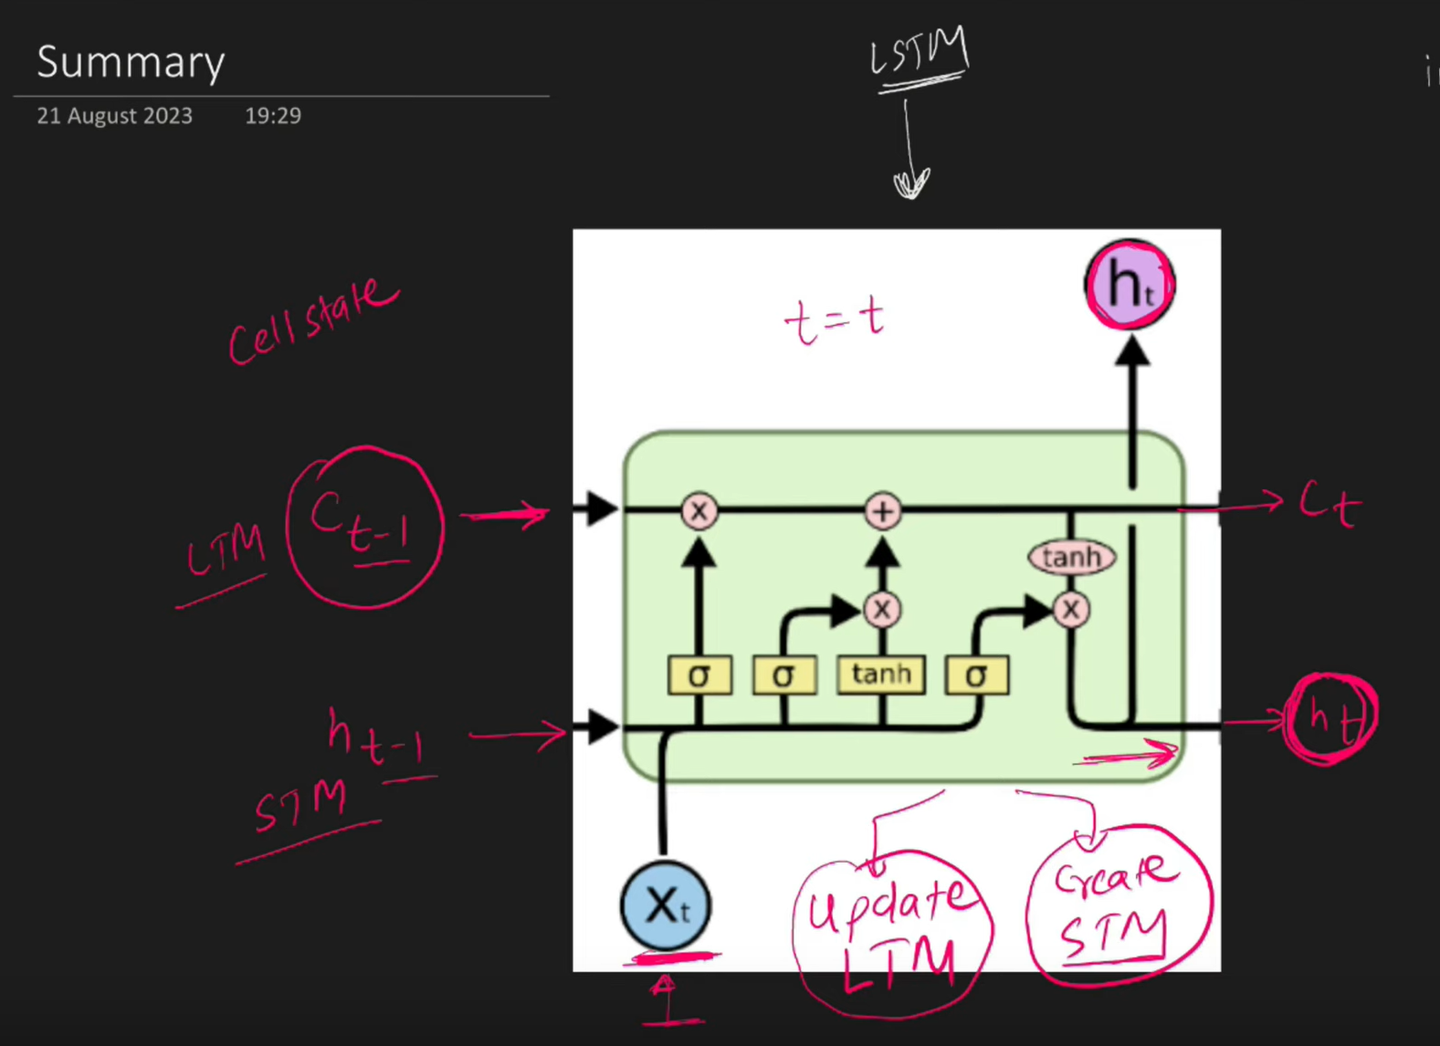 Summary
21 August 2023 19:29
LSTM
Cell state
t=t
ht
LTM
Ct-1
x
+
Ct
tanh
x
x
σ
σ
tanh
σ
ht-1
ht
STM
Xt
Update
LTM
Create
STM